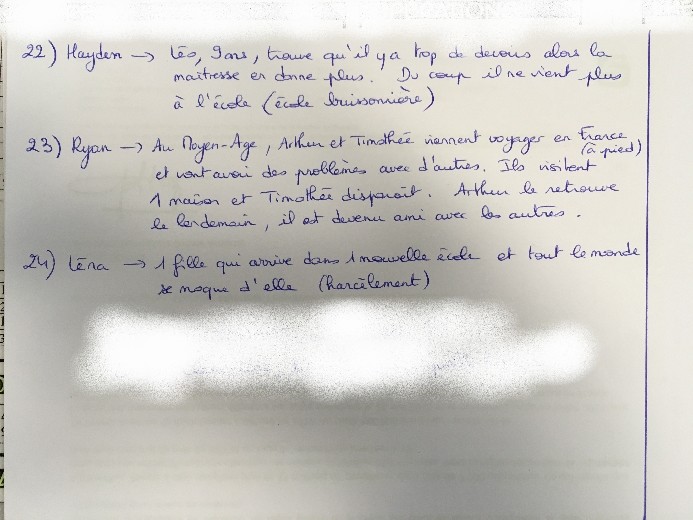 22) Hayden → Léo, 9 ans, trouve qu'il y a trop de devoirs alors la
maîtresse en donne plus. Du coup il ne vient plus
à l'école (école buissonnière)
23) Ryan → Au Moyen-Age, Arthur et Timothée viennent voyager en France
(à pied)
et vont avoir des problèmes avec d'autres. Ils visitent
1 maison et Timothée disparaît. Arthur le retrouve
le lendemain, il est devenu ami avec les autres.
24) Léna → 1 fille qui arrive dans 1 nouvelle école et tout le monde
se moque d'elle (harcèlement)